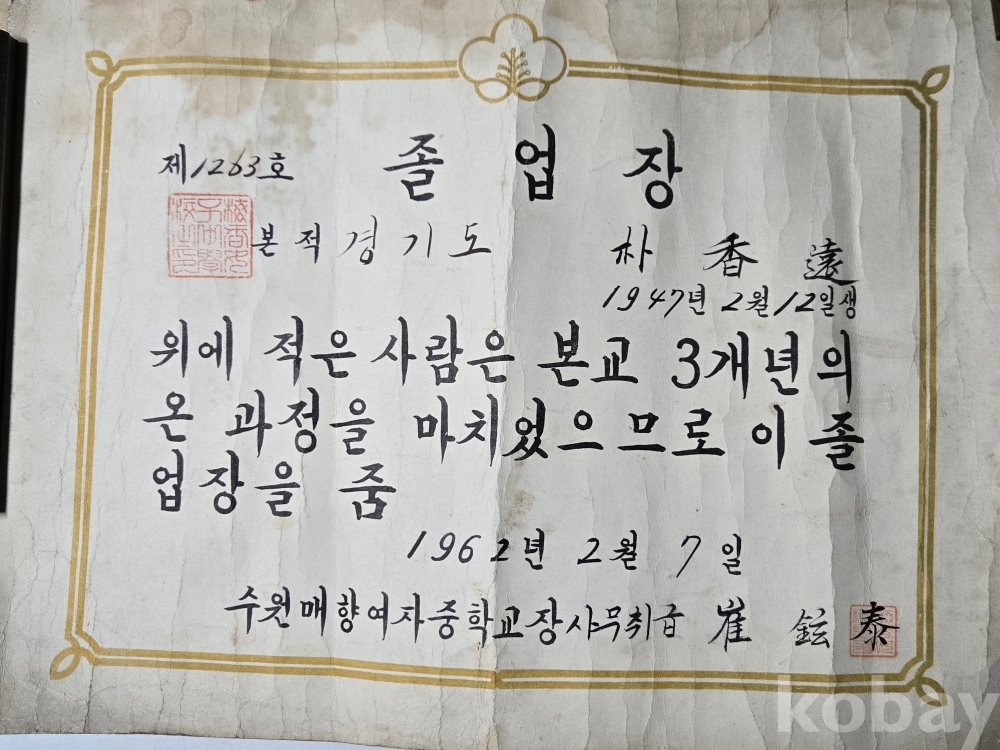 제1263호 졸업장
본적 경기도 朴香遠
1947년 2월 12일생
위에 적은 사람은 본교 3개년의
온 과정을 마치었으므로 이 졸
업장을 줌
1962년 2월 7일
수원매향여자중학교장사무취급 崔鉉泰
kobay